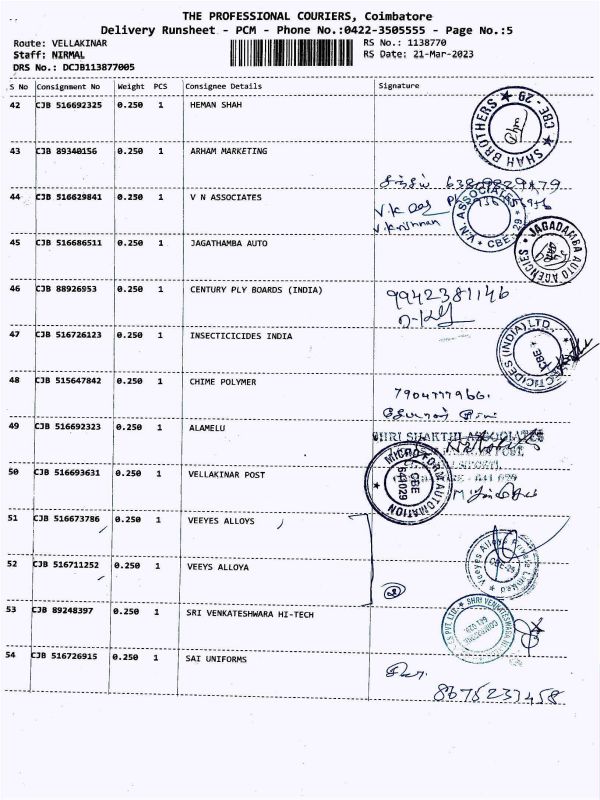 THE PROFESSIONAL COURIERS, Coimbatore
Delivery Runsheet - PCM - Phone No.:0422-3505555 - Page No.:5
Route: VELLAKINAR RS No.: 1138770
Staff: NIRMAL RS Date: 21-Mar-2023
DRS No.: DCJB113877005
S No Consignment No Weight PCS Consignee Details Signature
42 CJB 516692325 0.250 1 HEMAN SHAH
SHAH BROTHERS ★ CBE - 29 ★
43 CJB 89340156 0.250 1 ARHAM MARKETING
44 CJB 516629841 0.250 1 V N ASSOCIATES
V.N. ASSOCIATES ★ CBE - 29 ★
V. Krishnan
45 CJB 516686511 0.250 1 JAGATHAMBA AUTO
JAGADAMBA AUTO AGENCIES
46 CJB 88926953 0.250 1 CENTURY PLY BOARDS (INDIA) 9942381146
47 CJB 516726123 0.250 1 INSECTICICIDES INDIA
ECTICIDES (INDIA) LTD. CBE
48 CJB 515647842 0.250 1 CHIME POLYMER
49 CJB 516692323 0.250 1 ALAMELU
SHRI SHAKTHI ASSOCIATES
50 CJB 516693631 0.250 1 VELLAKINAR POST
MICROFORM AUTOMATION CBE 641029
51 CJB 516673786 0.250 1 VEEYES ALLOYS
52 CJB 516711252 0.250 1 VEEYS ALLOYA
Veeyes Alloys Private Limited CBE-29
53 CJB 89248397 0.250 1 SRI VENKATESHWARA HI-TECH
54 CJB 516726915 0.250 1 SAI UNIFORMS
8675237458